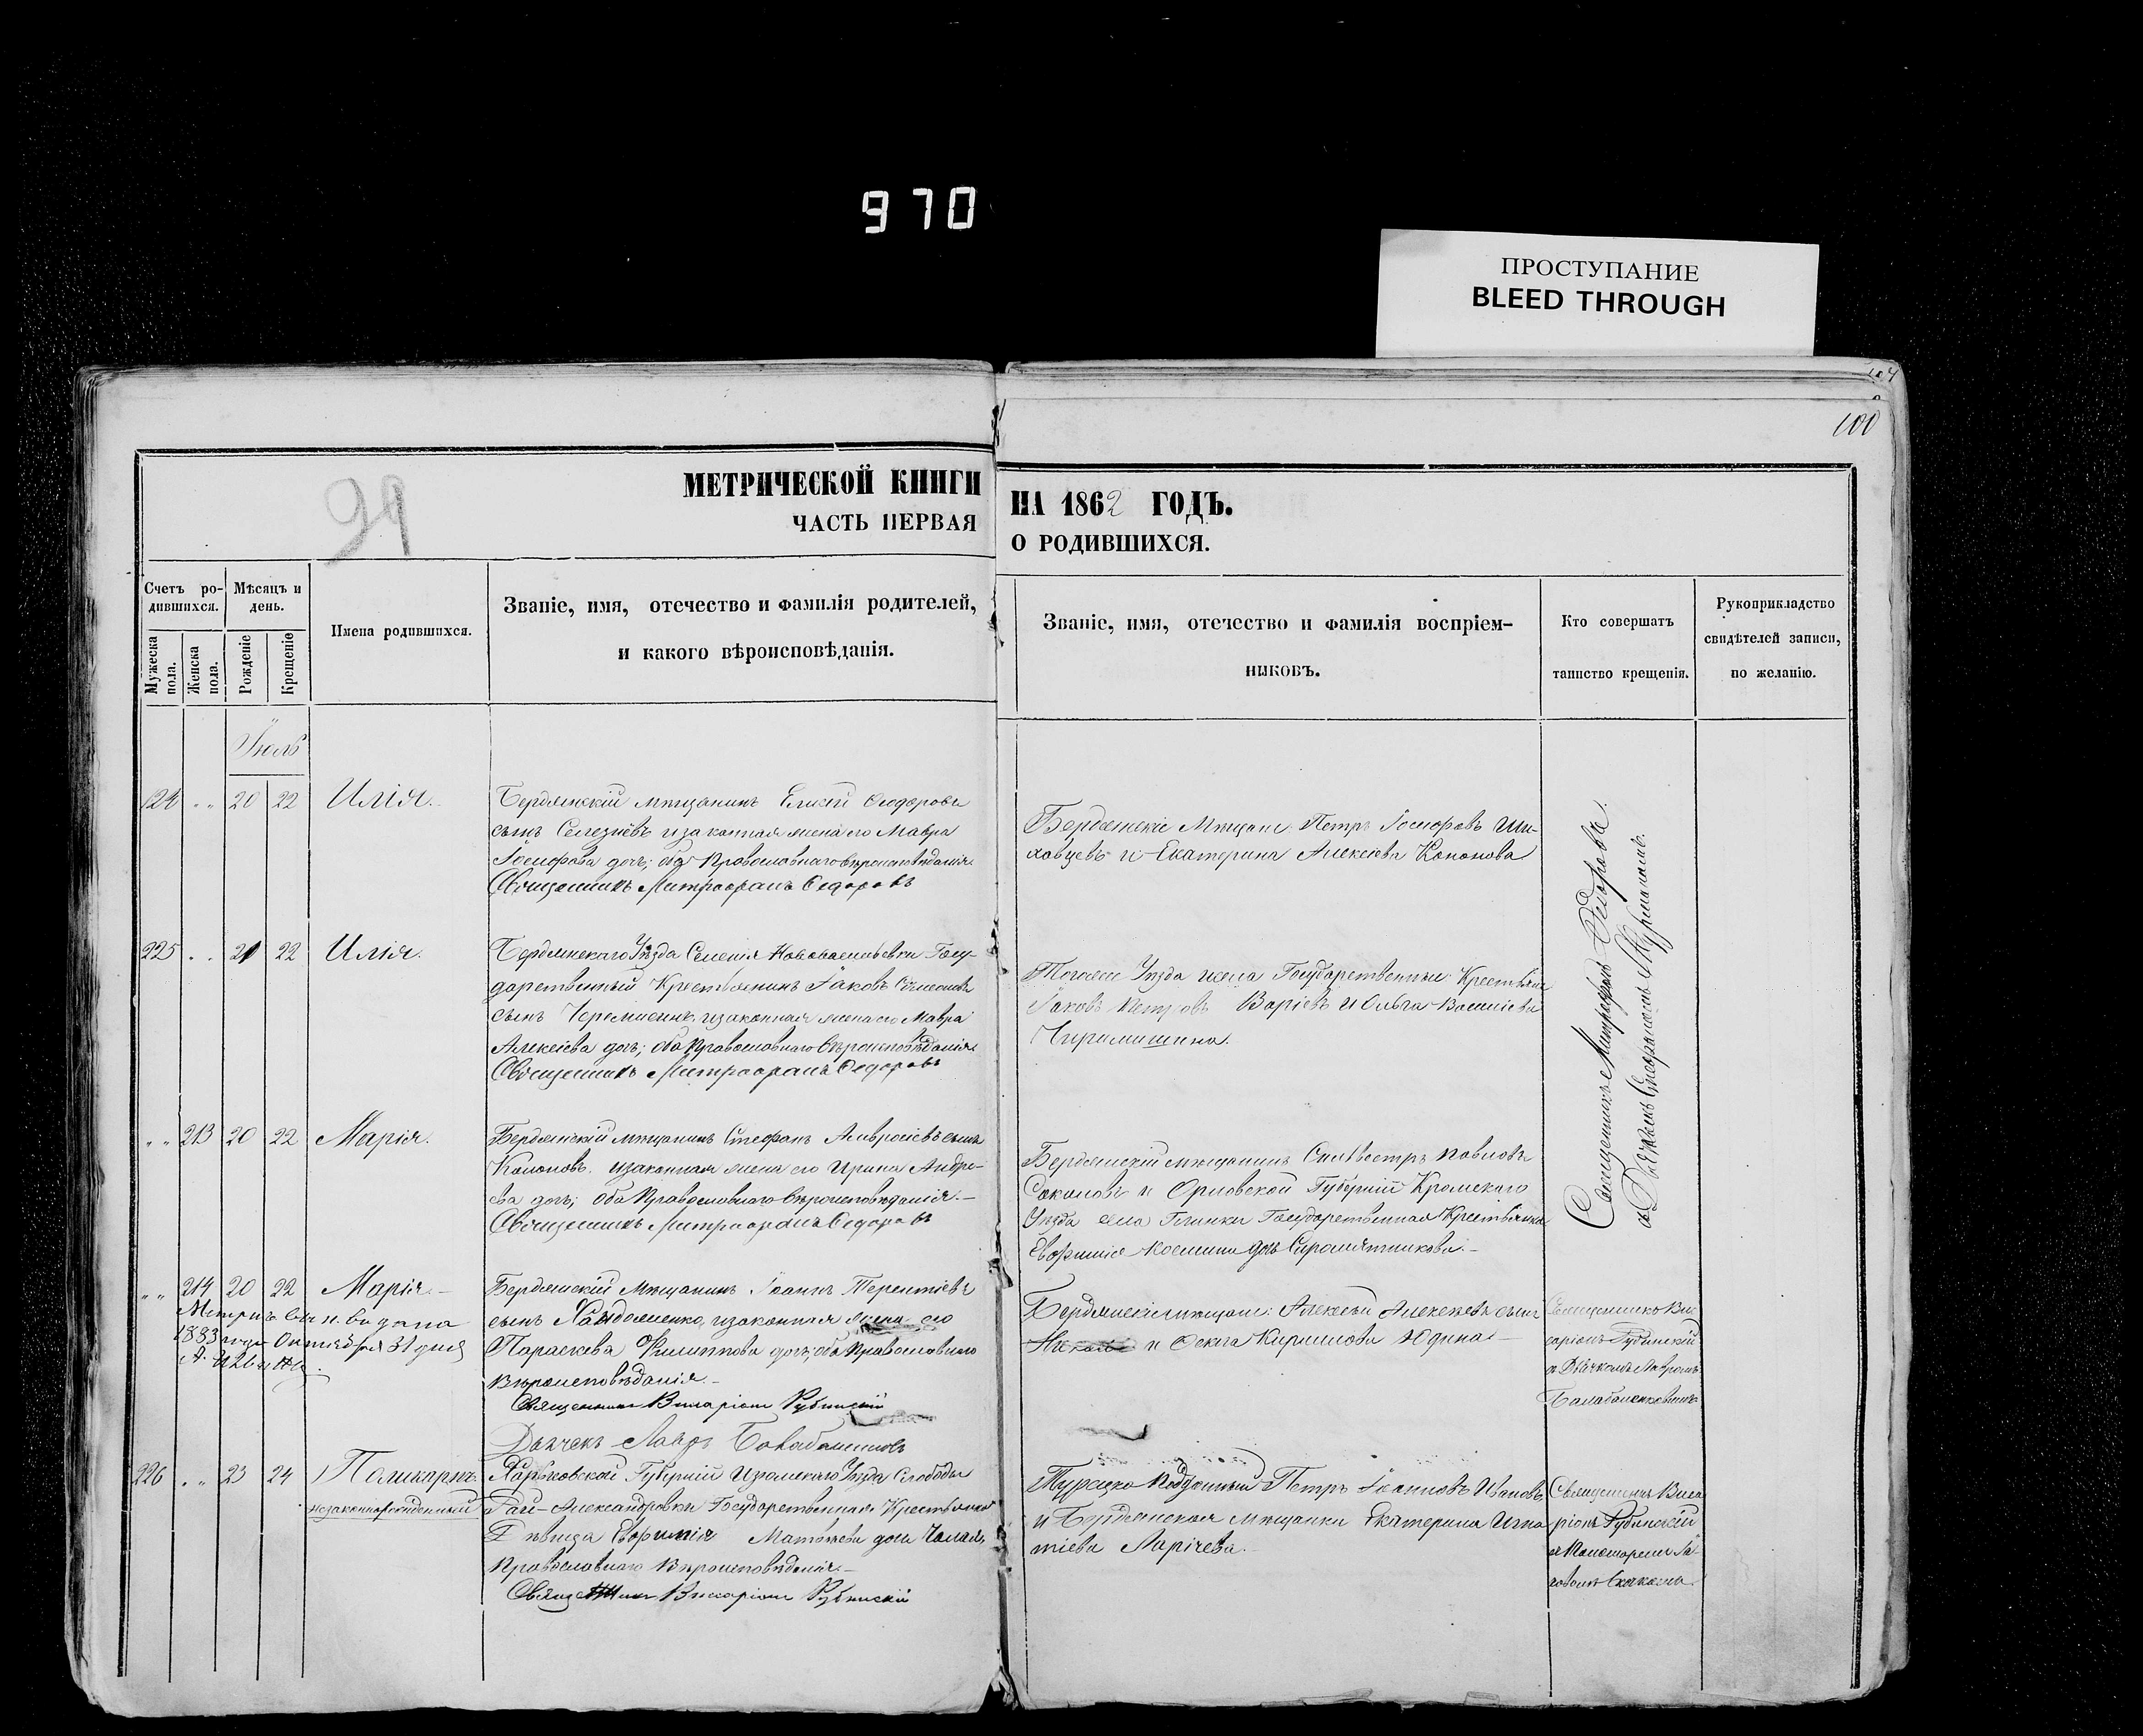 970
ПРОСТУПАНИЕ
BLEED THROUGH
100
99
МЕТРИЧЕСКОЙ КНИГИ НА 1862 ГОДЪ.
ЧАСТЬ ПЕРВАЯ О РОДИВШИХСЯ.
Счетъ ро-
дившихся.
Мужеска пола.
Женска пола.
Мѣсяцъ и
день.
Рожденіе
Крещеніе
Имена родившихся.
Званіе, имя, отечество и фамилія родителей,
и какого вѣроисповѣданія.
Званіе, имя, отечество и фамилія воспріем-
никовъ.
Кто совершатъ
таинство крещенія.
Рукоприкладство
свидѣтелей записи,
по желанію.
Іюль
20 22 Илія.
Бердянскій мѣщанинъ Елисей Ѳеодоровъ
сынъ Селезнёвъ и законная жена его Мавра
Іосифова дочь; оба Православнаго вѣроисповѣданія.
Священникъ Митрофанъ Ѳедоровъ
Бердянскіе Мѣщане: Петръ Іосифовъ
и Екатерина Алексіева Кононова
225 21 22 Илія.
Бердянскаго Уѣзда Селенія Новоспасовки Госу-
дарственный Крестьянинъ Іаковъ Симеоновъ
сынъ Черемисинъ и законная жена его Мавра
Алексіева дочь; оба Православнаго вѣроисповѣданія.
Священникъ Митрофанъ Ѳедоровъ
Тогоже Уѣзда и села Государственные Крестьяне
Іаковъ Петровъ и Ольга Василіева
213 20 22 Марія.
Бердянскій мѣщанинъ Стефанъ Амвросіевъ сынъ
Кононовъ и законная жена его Ирина Андре-
ева дочь; оба Православнаго вѣроисповѣданія.—
Священникъ Митрофанъ Ѳедоровъ
Бердянскій мѣщанинъ Сильвестръ Павловъ
Соколовъ и Орловской Губерніи Кромскаго
Уѣзда села Государственная Крестьянка
Евфимія дочь
Священникъ Митрофанъ Ѳедоровъ.
и Дьячекъ Стефанъ
214 20 22 Марія.—
Метрич. вып. выдана
1883 года Октября 31 дня
Бердянскій Мѣщанинъ Іоаннъ Терентіевъ
сынъ и законная жена его
Параскева Филиппова дочь; оба Православнаго
Вѣроисповѣданія.—
Священникъ Виссаріонъ Рубинскій
Дьячекъ Лавръ
Бердянскіе мѣщане: Алексѣй Алексѣевъ сынъ
и Ѳекла Кириллова Юдина.—
Священникъ Вис-
саріонъ Рубинскій
и Дьячкомъ Лавромъ
226 23 24 Поликарпъ
незаконнорожденный
Харьковской Губерніи Изюмскаго Уѣзда Слободы
Рай-Александровки Государственная Крестьянка
Дѣвица Евфимія Матвѣева дочь
Православнаго Вѣроисповѣданія.—
Священникъ Виссаріонъ Рубинскій
Турецко Подданный Петръ Іоанновъ Ивановъ
и Бердянская Мѣщанка Екатерина Игна-
тіева Ларічева.
Священникъ Висса-
ріонъ Рубинскій
и Пономаремъ Іа-